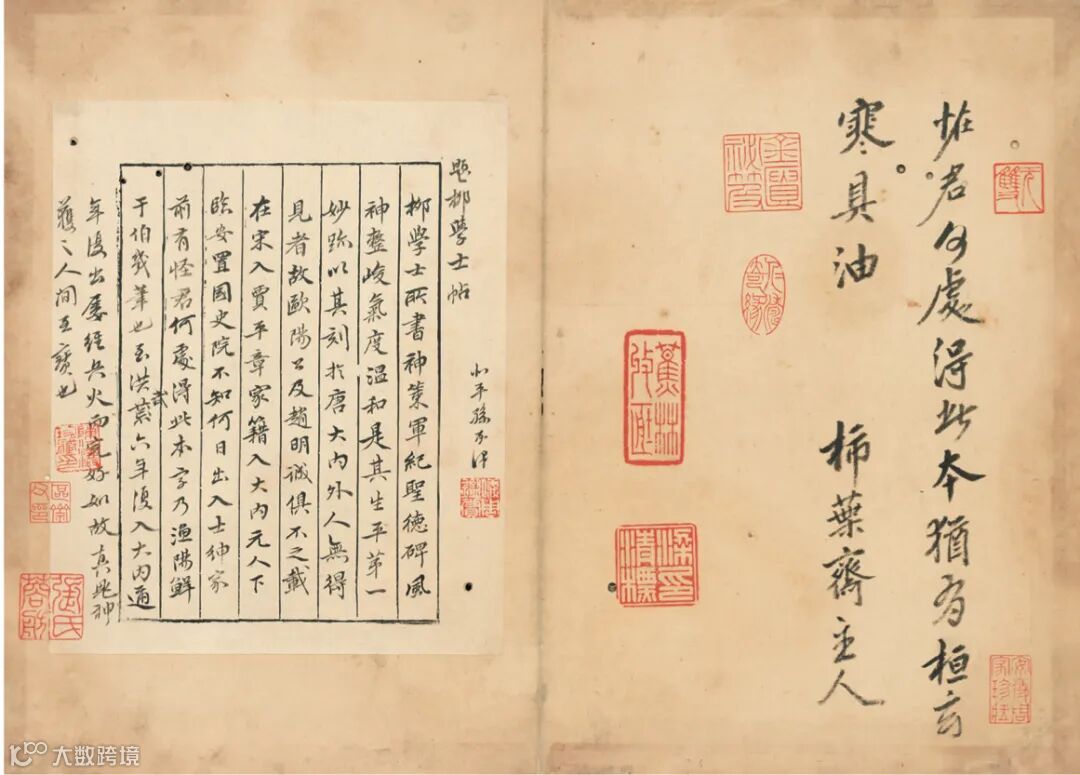 怪君何處得此本猶有桓玄
寒具油
柿葉齋主人
安儀周家珍藏
蕉林收藏
梁清標印
題柳學士帖
北平孫承澤
柳學士所書神策軍紀聖德碑風
神整峻氣度溫和是其生平第一
妙跡以其刻於唐大內外人無得
見者故歐陽公及趙明誠俱不之載
在宋入賈平章家籍入大內元人下
臨安置國史院不知何日出入士紳家
前有怪君何處得此本字乃漁陽鮮
于伯幾筆也至洪武六年復入大內
年復出屢經兵火而完好如故真鬼神
護之人間至寶也
張氏蓉舫
大数跨境